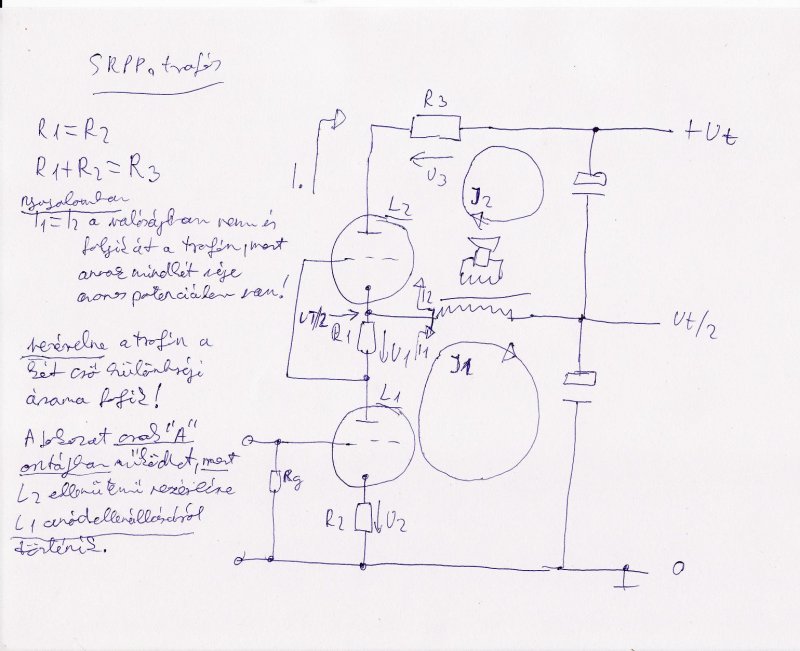 SRPP. trafós
R1=R2
R1+R2=R3
nyugalomban
I1=I2 a valóságban nem is
folyik át a trafón, mert
annak mindkét vége
azonos potenciálon van!
vezérelve a trafón a
két cső különbségi
árama folyik!
A fokozat csak "A"
osztályban működhet, mert
L2 ellenütemű vezérlése
L1 anódellenállásáról
történik.
1.
R3
+Ut
U3
I2
L2
I2
UT/2
R1
U1
I1
Ut/2
I1
L1
Rg
R2
U2
0